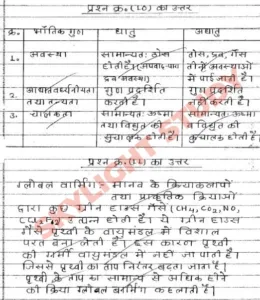 प्रश्न क्र.(10) का उत्तर
क्र. भौतिक गुण धातु अधातु
1. अवस्था सामान्यतः ठोस होती है। (अपवाद-पारा द्रव अवस्था) ठोस, द्रव, गैस तीनों अवस्थाओं में पाई जाती है।
2. आघातवर्धनीयता तथा तन्यता गुण प्रदर्शित करती है। गुण प्रदर्शित नहीं करती है।
3. चालकता सामान्यतः ऊष्मा तथा विद्युत की सुचालक होती है। सामान्यतः ऊष्मा व विद्युत की कुचालक होती है।
प्रश्न क्र.(11) का उत्तर
ग्लोबल वार्मिंग : मानव के क्रियाकलापों
तथा प्राकृतिक क्रियाओं
द्वारा कुछ ग्रीन हाउस गैसें (CH4, CO2, NO,
उत्पन्न होती है। ये ग्रीन हाउस
गैसें पृथ्वी के वायुमंडल में विशाल
परत बना लेती है। इस कारण पृथ्वी
की गर्मी वायुमंडल में नहीं जा पाती है।
जिससे पृथ्वी का ताप निरंतर बढ़ता जाता है।
पृथ्वी के ताप का सामान्य से अधिक होने
की क्रिया ग्लोबल वार्मिंग कहलाती है।
SKYLIGHT STUDY